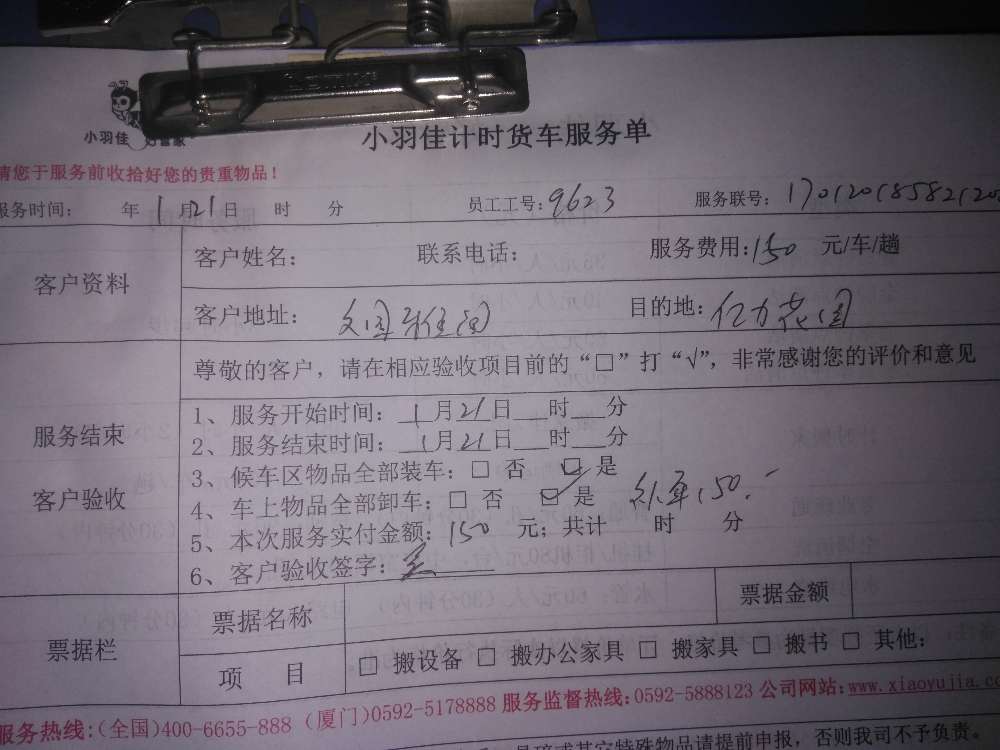 小羽佳
小羽佳计时货车服务单
请您于服务前收拾好您的贵重物品！
服务时间： 年 1 月 21 日 时 分 员工工号：9623 服务联号：
客户资料
客户姓名： 联系电话： 服务费用：150 元/车/趟
客户地址： 文园 目的地：亿力花园
尊敬的客户，请在相应验收项目前的“□”打“√”，非常感谢您的评价和意见
服务结束
客户验收
1、服务开始时间： 1 月 21 日 时 分
2、服务结束时间： 1 月 21 日 时 分
3、候车区物品全部装车：□ 否 ☑ 是
4、车上物品全部卸车：□ 否 ☑ 是 150.-
5、本次服务实付金额：150 元；共计 时 分
6、客户验收签字：
票据栏
票据名称 票据金额
项 目 □ 搬设备 □ 搬办公家具 □ 搬家具 □ 搬书 □ 其他：
服务热线：(全国)400-6655-888 (厦门)0592-5178888 服务监督热线：0592-5888123 公司网站：www.xiaoyujia.co
特殊物品请提前申报，否则我司不予负责。